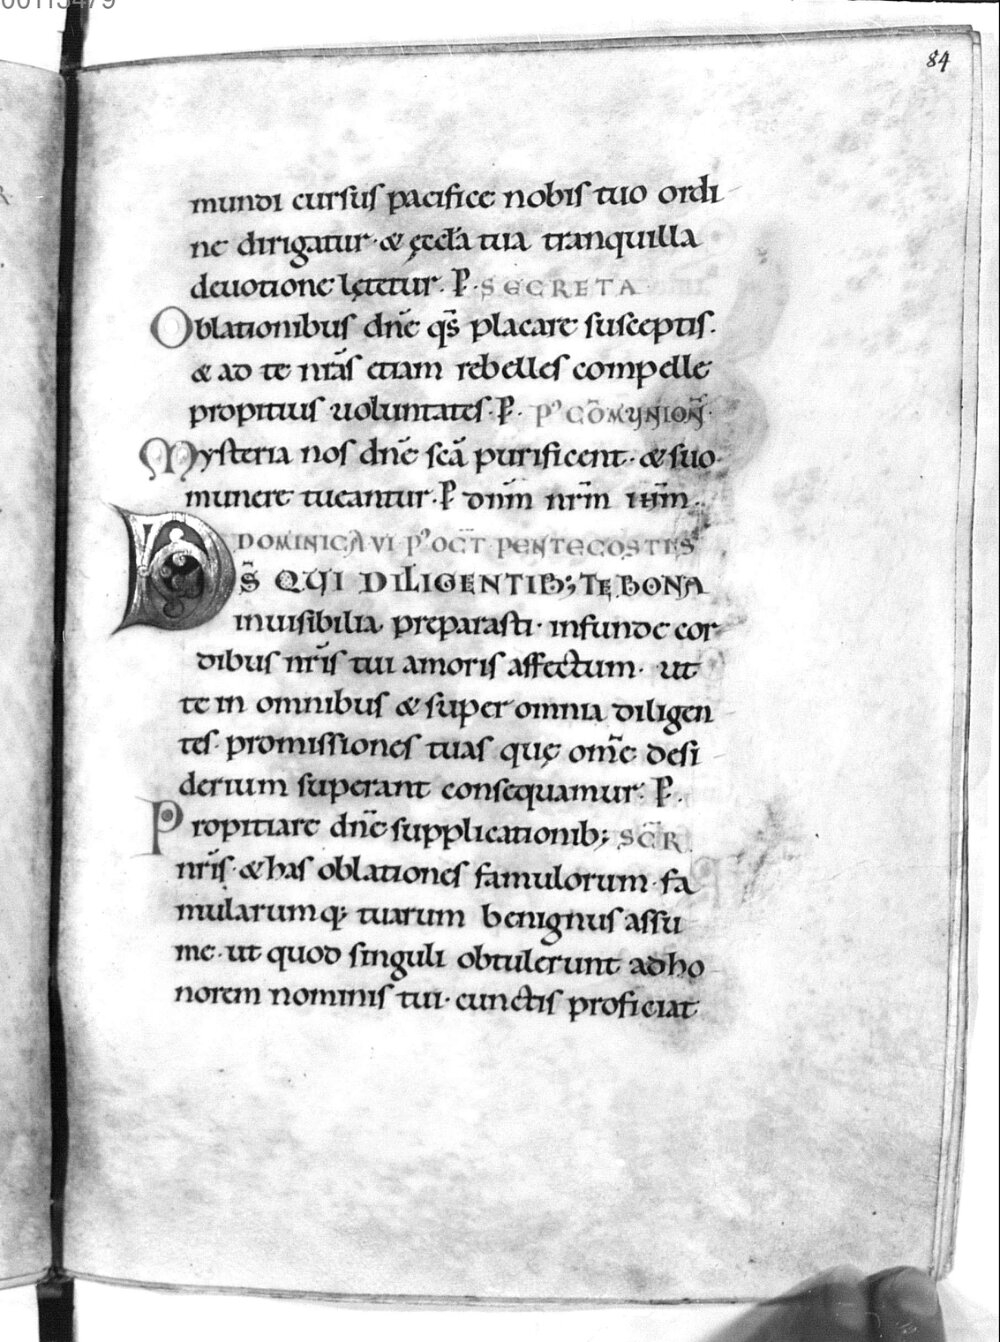 00113479
84
mundi cursus pacifice nobis tuo ordi
ne dirigatur · & ęccl̄a tua tranquilla
deuotione lętetur. P̄. SECRETA
Oblationibus dn̄e qs̄ placare susceptis.
& ad te nr̄as etiam rebelles compelle
propitius uoluntates. P̄. P' COM̄VNION̄.
Mysteria nos dn̄e sc̄a purificent. & suo
munere tueantur. P̄ dn̄m nr̄m ih̄m.
DOMINICA VI P' OCT̄ PENTECOSTES
D̄S QVI DILIGENTIB; TE BONA
inuisibilia preparasti · infunde cor
dibus nr̄is tui amoris affectum. ut
te in omnibus & super omnia diligen
tes. promissiones tuas quę om̄e desi
derium superant consequamur. P̄.
Propitiare dn̄e supplicationib; SEC̄R
nr̄is · & has oblationes famulorum · fa
mularumq; tuarum benignus assu
me. ut quod singuli obtulerunt ad ho
norem nominis tui · cunctis proficiat